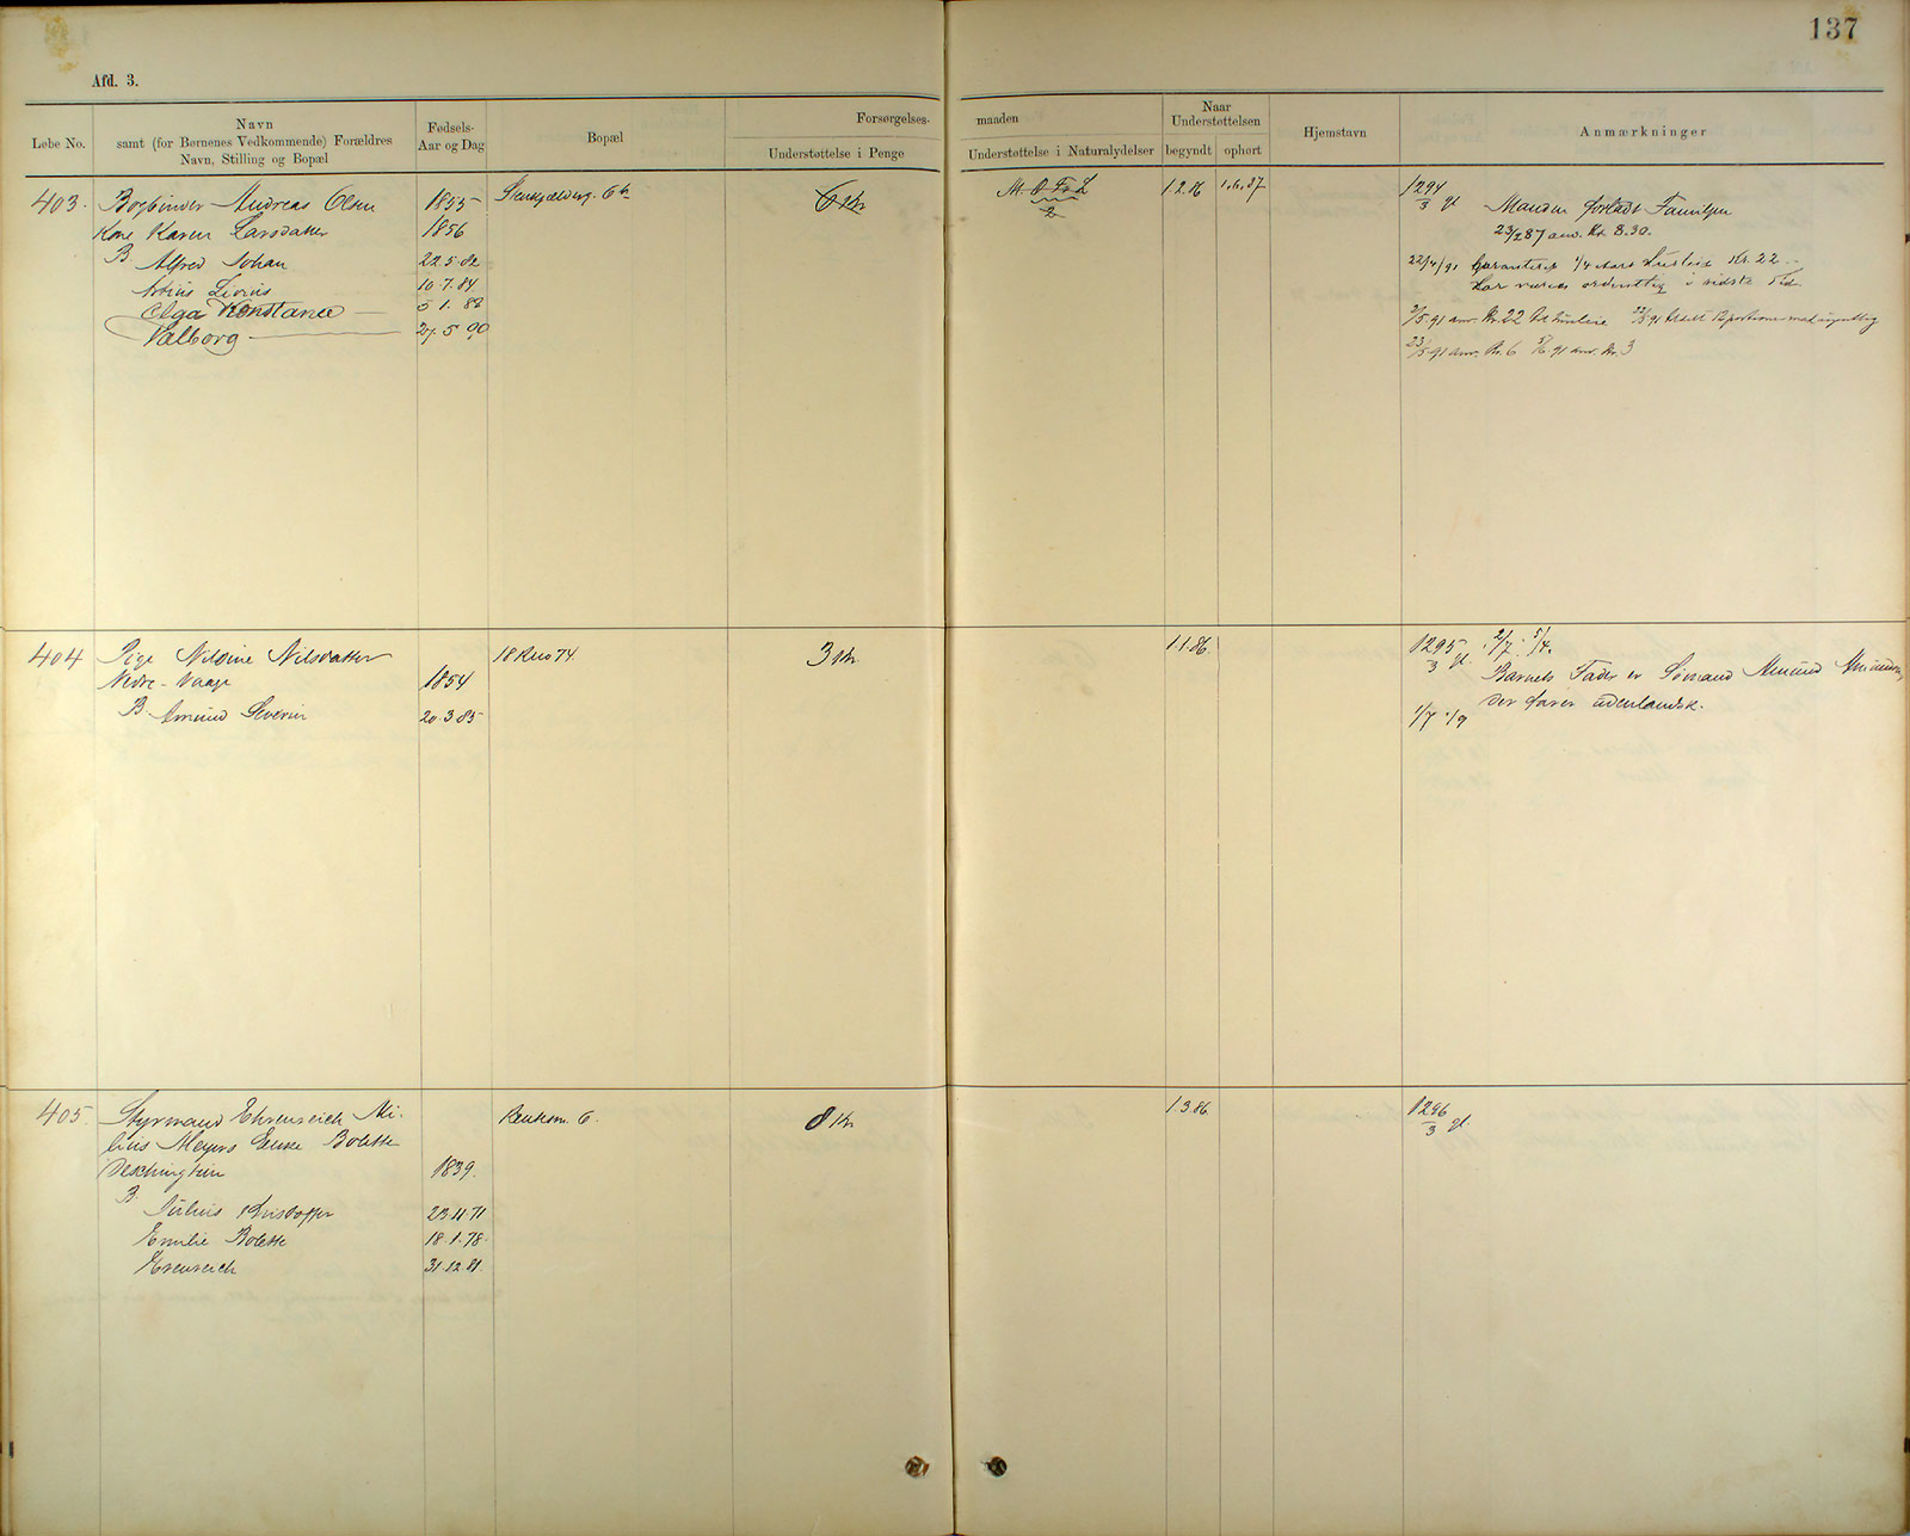 137
Afd. 3.
Løbe No.
Navn
samt (for Børnenes Vedkommende) Forældres
Navn, Stilling og Bopæl
Fødsels-
Aar og Dag
Bopæl
Forsørgelses-
maaden
Understøttelse i Penge
Understøttelse i Naturalydelser
Naar
Understøttelsen
begyndt
ophørt
Hjemstavn
Anmærkninger
403.
Bogbinder Andreas Olsen
1855
6 Kr
1.2.86
1.6.87
1294
3 gl
Manden forladt Familjen
Kone Karen Larsdatter
1856
23/2 87 anv. Kr 8.30.
B. Alfred Johan
22.5.82
22/4/91 Garanteret 1/4 Aars Husleie Kr. 22.-
Livius
10.7.84
har været ordentlig i sidste Tid.
Olga Konstance
5 1. 88
2/5.91 anv. Kr. 22 til Husleie
Valborg
27.5 90
23/5.91 anv. Kr. 6 5/6.91 anv. Kr. 3
404
Pige Nilsine Nilsdatter
Nedre-Vaage
1854
B. Amund Severin
20.3.85
18 Rao 74.
3 Kr.
1.1.86.
1295
3 gl.
2/7. 5/4.
Barnets Fader er Sømand Amund
der farer udenlandsk.
1/7 1/9
405.
Styrmand Ehrenreich Mi-
lius Meyers Enke Bolette
1839.
B. Julius Kristoffer
23.11.71
Emilie Bolette
18.1.78.
Erenreich
31.12.81.
6.
8 Kr
1.3.86
1296
3 gl.